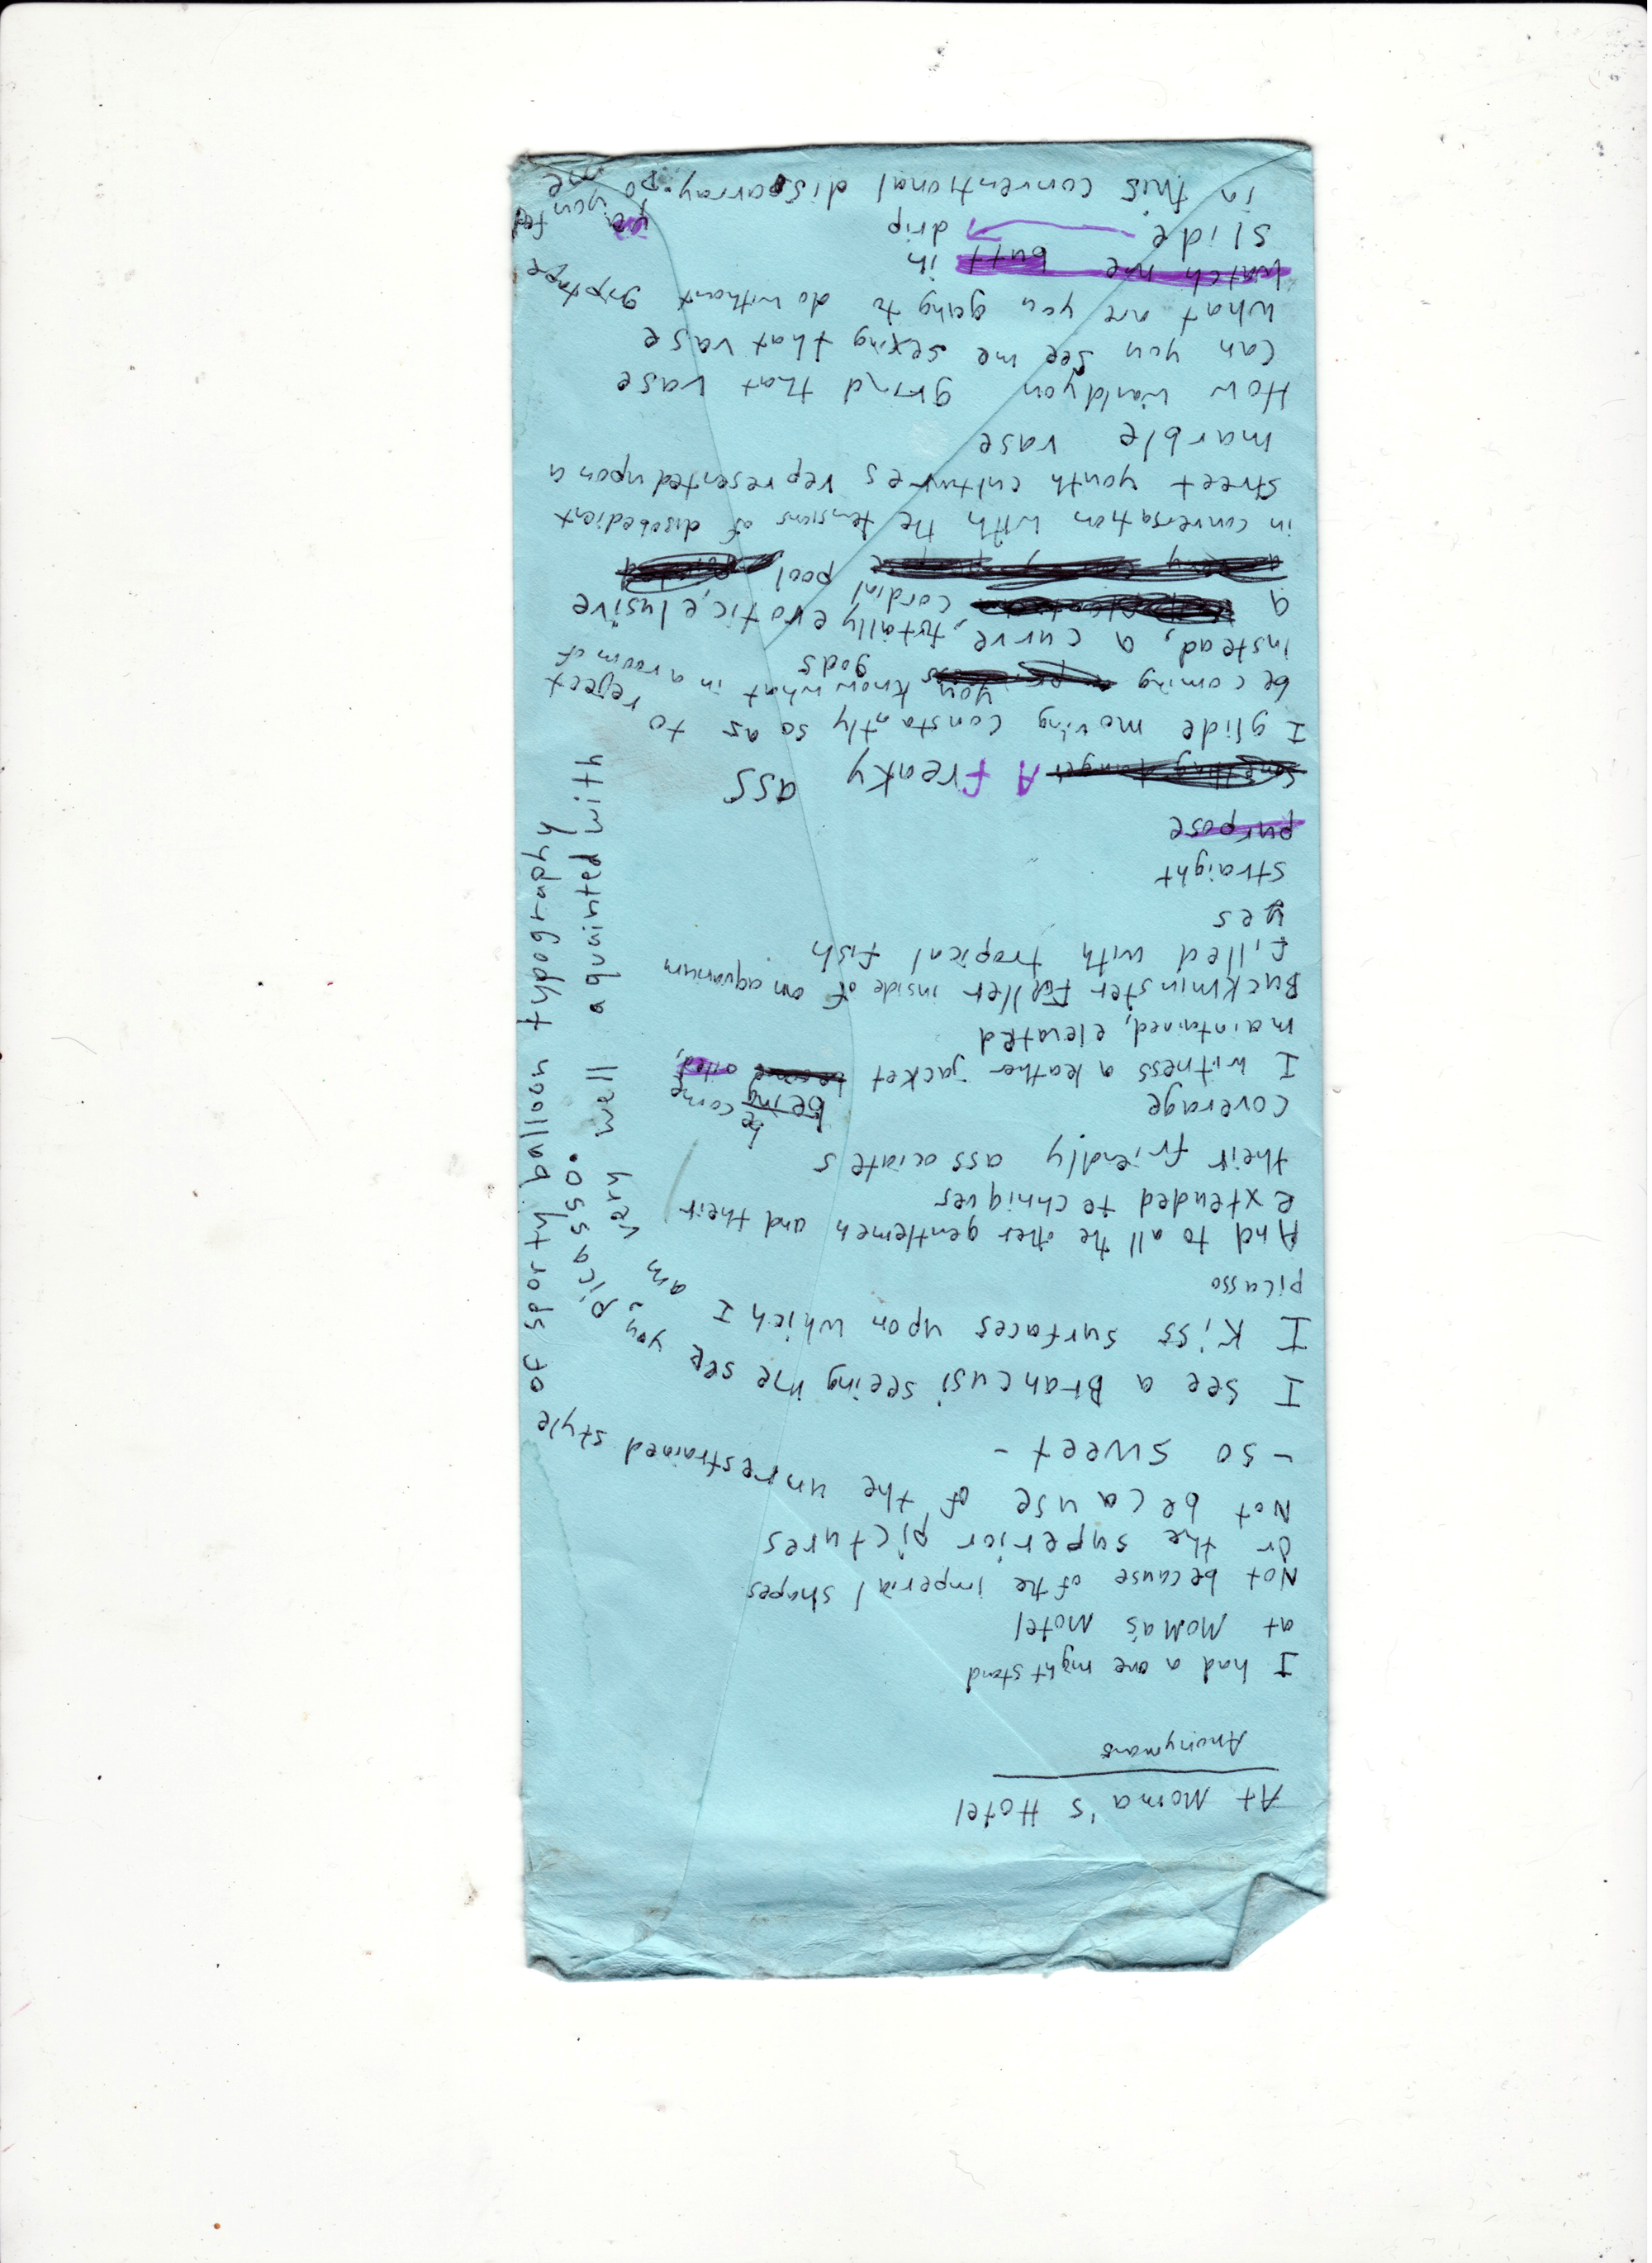 At Moma's Hotel
Anonymous
I had a one night stand
at MoMa's Motel
Not because of the imperial shapes
Or the superior pictures
Not because of the unrestrained style
of 90s sporty balloon typography
- so sweet -
I see a Brancusi seeing me see you, picasso.
I kiss surfaces upon which I am very well aquainted with
picasso
And to all the other gentlemen and their
extended techniques
their friendly associates
coverage
I witness a leather jacket being become oiled,
maintained, elevated
Buckminster Fuller inside of an aquarium
filled with tropical fish
yes
straight
purpose
Something A freaky ass
I glide moving constantly so as to reject
becoming you know what in a room of
gods
instead, a curve, totally erotic, elusive
a cordial
pool
in conversation with the tensions of disobedient
street youth cultures represented upon a
marble vase
How would you grind that vase
Can you see me sexing that vase
What are you going to do without griptape
watch me butt in
slide drip
in this conventional disarray. Do you feel me